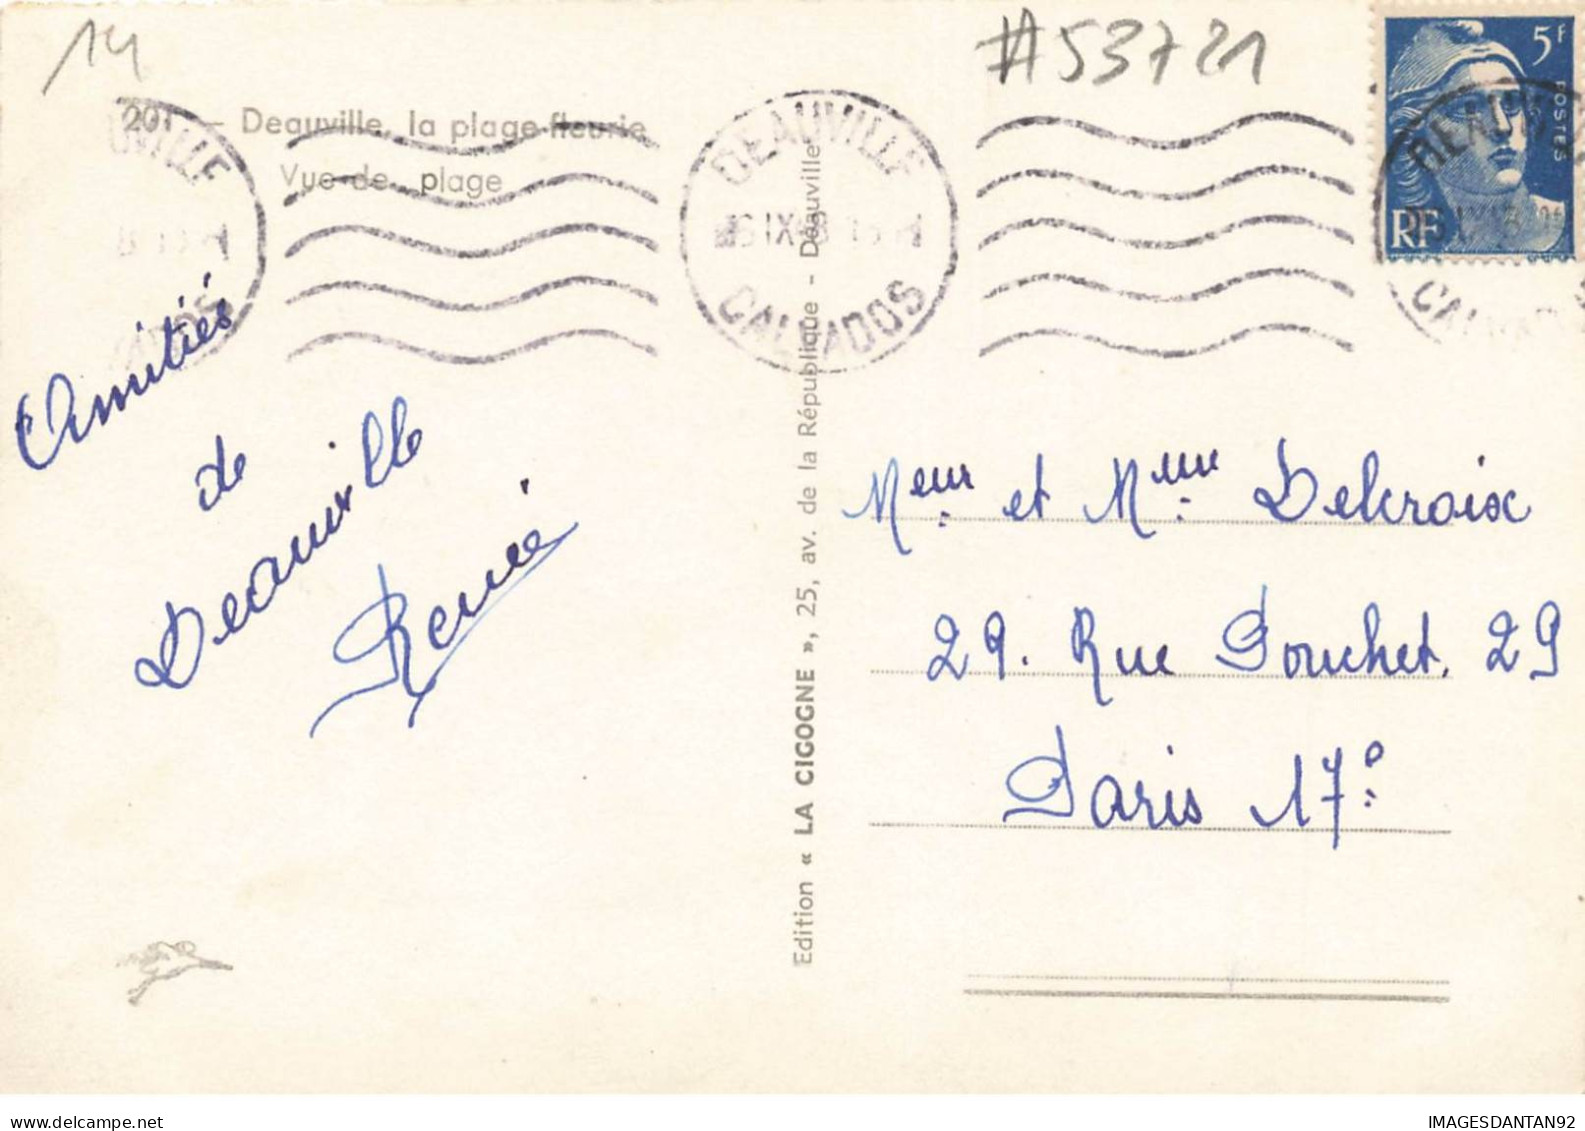 14
#53721
201 — Deauville, la plage fleurie
Vue de plage
DEAUVILLE
CALVADOS
5F
POSTES
RF
DEAUVILLE
CALVADOS
UVILLE
Amitiés
de
Deauville
Renée
Edition « LA CIGOGNE », 25, av. de la République - Deauville
Meur et Mme Delcroix
29. Rue Pouchet. 29
Paris 17e
IMAGESDANTAN92